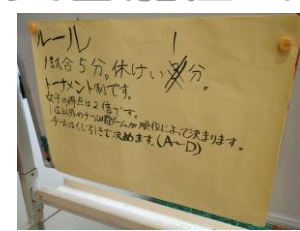 ルール
1試合5分。休けい1分。
トーナメント制です。
女子の得点は2倍です。
1位以外のチームは順位によって決まります。
チームはくじ引きで決めます。(A~D)